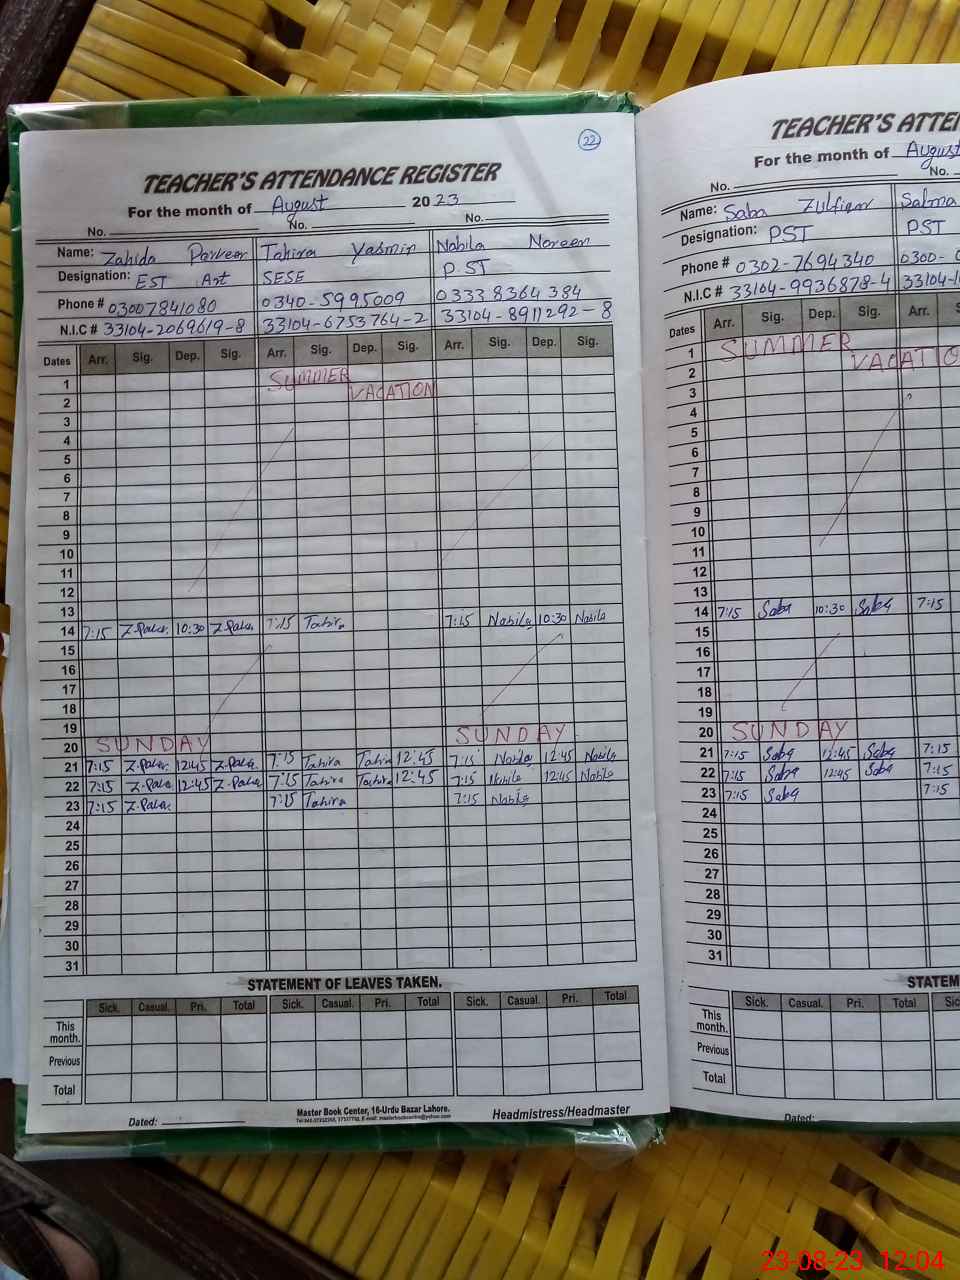 22
TEACHER'S ATTENDANCE REGISTER
For the month of August 2023
No. No. No.
Name: Zahida Parveen Tahira Yasmin Nabila Noreen
Designation: EST Art SESE P.ST
Phone # 03007841080 0340-5995009 0333 8364 384
N.I.C # 33104-2069619-8 33104-6753764-2 33104-8911292-8
Dates Arr. Sig. Dep. Sig. Arr. Sig. Dep. Sig. Arr. Sig. Dep. Sig.
1 SUMMER
2 VACATION
3
4
5
6
7
8
9
10
11
12
13
14 7:15 10:30 7:15 Tahira 7:15 Nabila 10:30 Nabila
15
16
17
18
19
20 SUNDAY SUNDAY
21 7:15 12:45 7:15 Tahira Tahira 12:45 7:15 Nabila 12:45 Nabila
22 7:15 12:45 7:15 Tahira Tahira 12:45 7:15 Nabila 12:45 Nabila
23 7:15 7:15 Tahira 7:15 Nabila
24
25
26
27
28
29
30
31
STATEMENT OF LEAVES TAKEN.
Sick. Casual. Pri. Total Sick. Casual. Pri. Total Sick. Casual. Pri. Total
This month.
Previous
Total
Dated:
Master Book Center, 16-Urdu Bazar Lahore.
Headmistress/Headmaster
TEACHER'S ATTE
For the month of August
No. No.
Name: Saba Zulfiqar Salma
Designation: PST PST
Phone # 0302-7694340 0300-
N.I.C # 33104-9936878-4 33104-
Dates Arr. Sig. Dep. Sig. Arr.
1 SUMMER
2 VACATIO
3
4
5
6
7
8
9
10
11
12
13
14 7:15 Saba 10:30 Saba 7:15
15
16
17
18
19
20 SUNDAY
21 7:15 Saba 12:45 Saba 7:15
22 7:15 Saba 12:45 Saba 7:15
23 7:15 Saba 7:15
24
25
26
27
28
29
30
31
STATEM
Sick. Casual. Pri. Total
This month.
Previous
Total
Dated:
23-08-23 12:04